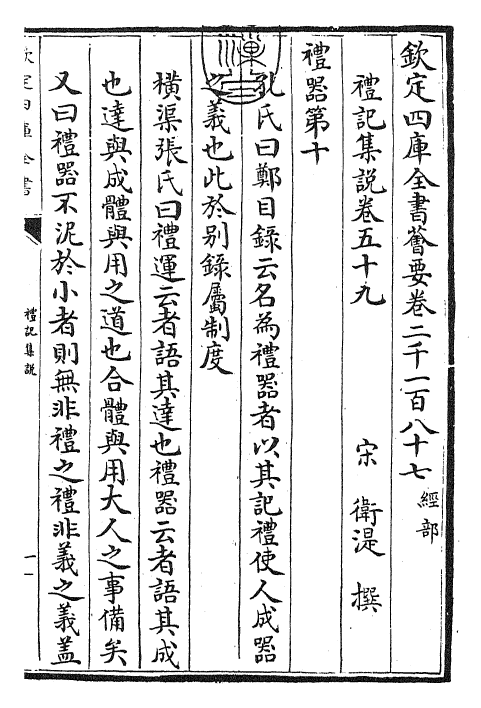 欽定四庫全書薈要卷二千一百八十七 經部
禮記集說卷五十九 宋 衛湜 撰
禮器第十
孔氏曰鄭目錄云名為禮器者以其記禮使人成器
之義也此於别錄屬制度
橫渠張氏曰禮運云者語其達也禮器云者語其成
也達與成體與用之道也合體與用大人之事備矣
又曰禮器不泥於小者則無非禮之禮非義之義蓋
欽定四庫全書
禮記集說
一